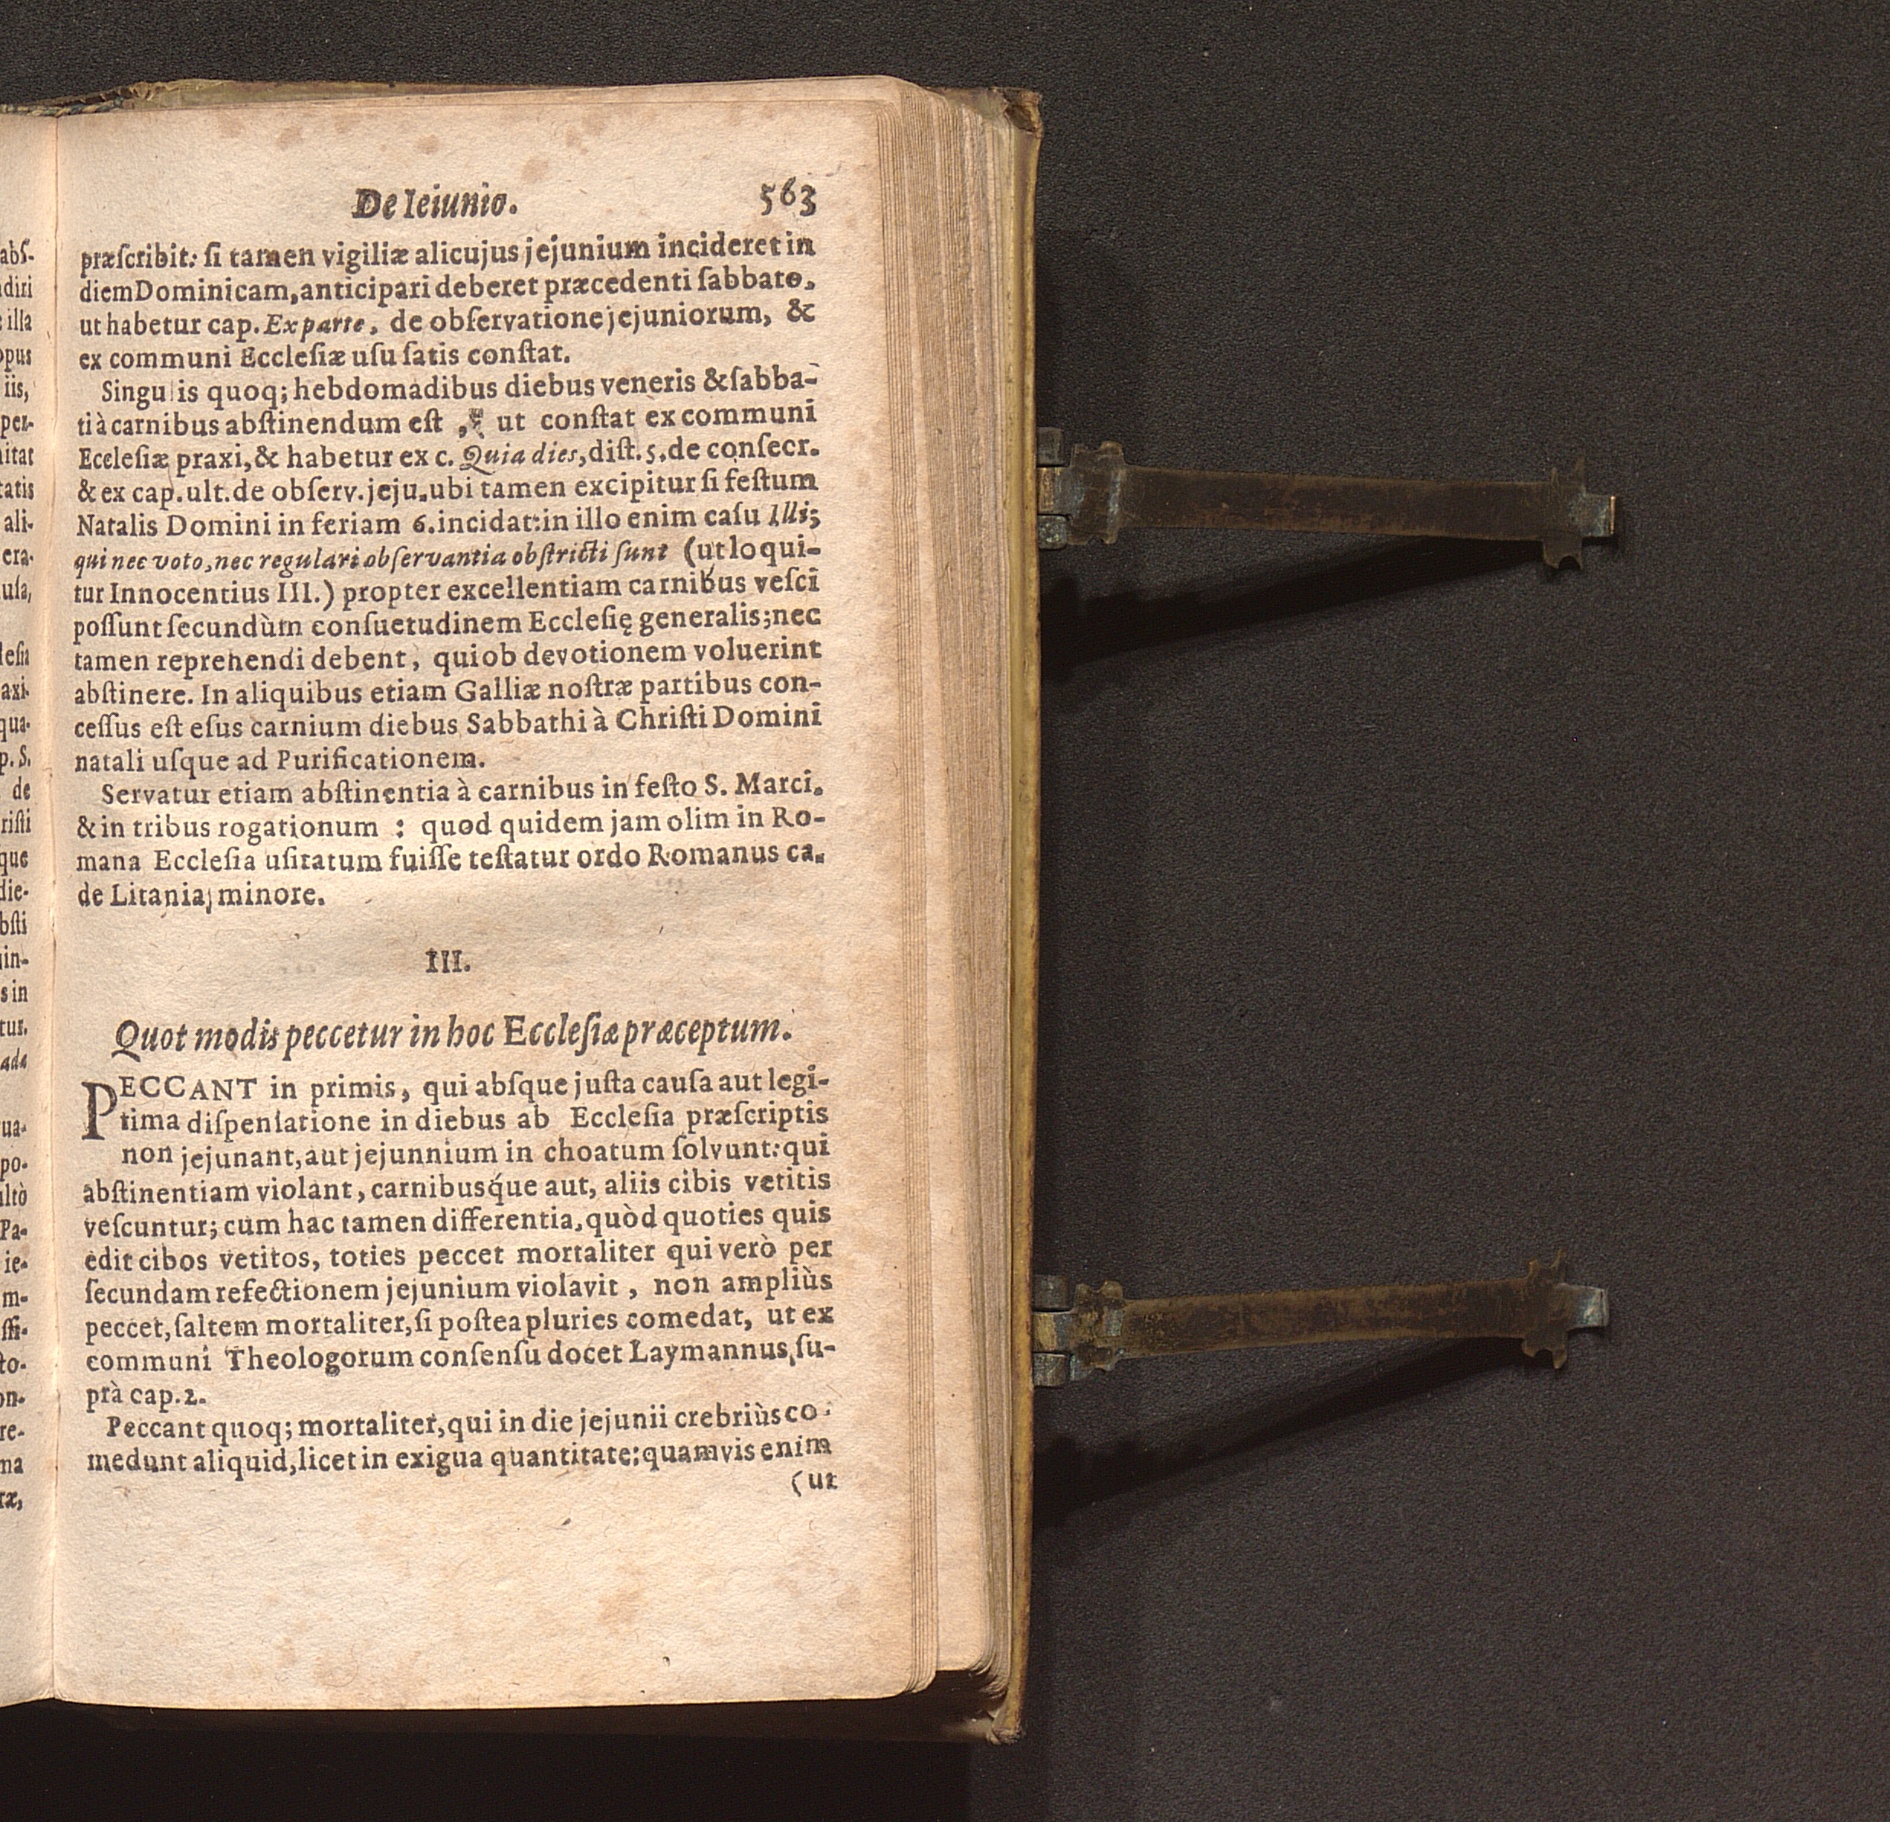 De Ieiunio. 563
præſcribit: ſi tamen vigiliæ alicujus jejunium incideret in
diem Dominicam, anticipari deberet præcedenti ſabbato,
ut habetur cap. Ex parte, de obſervatione jejuniorum, &
ex communi Eccleſiæ uſu ſatis conſtat.
Singulis quoq; hebdomadibus diebus veneris & ſabba-
ti à carnibus abſtinendum eſt, ut conſtat ex communi
Eccleſiæ praxi, & habetur ex c. Quia dies, diſt. 5. de conſecr.
& ex cap. ult. de obſerv. jeju. ubi tamen excipitur ſi feſtum
Natalis Domini in feriam 6. incidat: in illo enim caſu Illi;
qui nec voto, nec regulari obſervantia obſtricti ſunt (ut loqui-
tur Innocentius III.) propter excellentiam carnibus veſci
poſſunt ſecundùm conſuetudinem Eccleſię generalis; nec
tamen reprehendi debent, qui ob devotionem voluerint
abſtinere. In aliquibus etiam Galliæ noſtræ partibus con-
ceſſus eſt eſus carnium diebus Sabbathi à Chriſti Domini
natali uſque ad Purificationem.
Servatur etiam abſtinentia à carnibus in feſto S. Marci.
& in tribus rogationum : quod quidem jam olim in Ro-
mana Eccleſia uſitatum fuiſſe teſtatur ordo Romanus ca.
de Litania minore.
III.
Quot modis peccetur in hoc Eccleſiæ præceptum.
PECCANT in primis, qui abſque juſta cauſa aut legi-
tima diſpenſatione in diebus ab Eccleſia præſcriptis
non jejunant, aut jejunnium in choatum ſolvunt: qui
abſtinentiam violant, carnibusq́ue aut, aliis cibis vetitis
veſcuntur; cum hac tamen differentia, quòd quoties quis
edit cibos vetitos, toties peccet mortaliter qui verò per
ſecundam refectionem jejunium violavit, non ampliùs
peccet, ſaltem mortaliter, ſi poſtea pluries comedat, ut ex
communi Theologorum conſenſu docet Laymannus, ſu-
prà cap. 2.
Peccant quoq; mortaliter, qui in die jejunii crebriùs co-
medunt aliquid, licet in exigua quantitate: quamvis enim
(ut